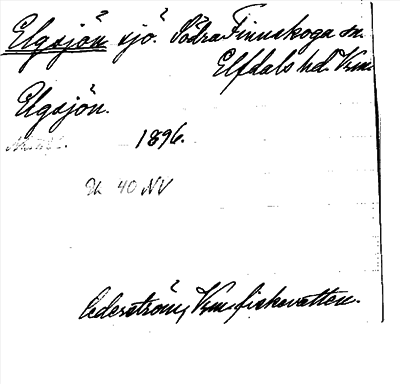 Elgsjön sjö. Södra Finnskoga sn.
Elfdals hd. Vrm.
Elgsjön.
1896.
Sk 40 NV
Cederström, Vrm. fiskevatten.